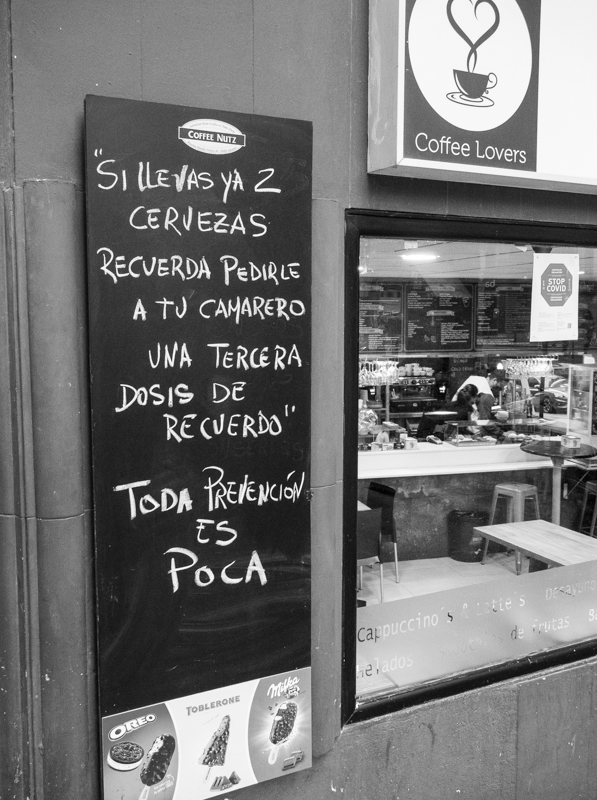 COFFEE NUTZ
"SI LLEVAS YA 2
CERVEZAS
RECUERDA PEDIRLE
A TU CAMARERO
UNA TERCERA
DOSIS DE
RECUERDO"
TODA PREVENCIÓN
ES
POCA
OREO
TOBLERONE
Milka
Coffee Lovers
STOP
COVID
Cappuccino's & latte's Desayuno
de frutas
helados